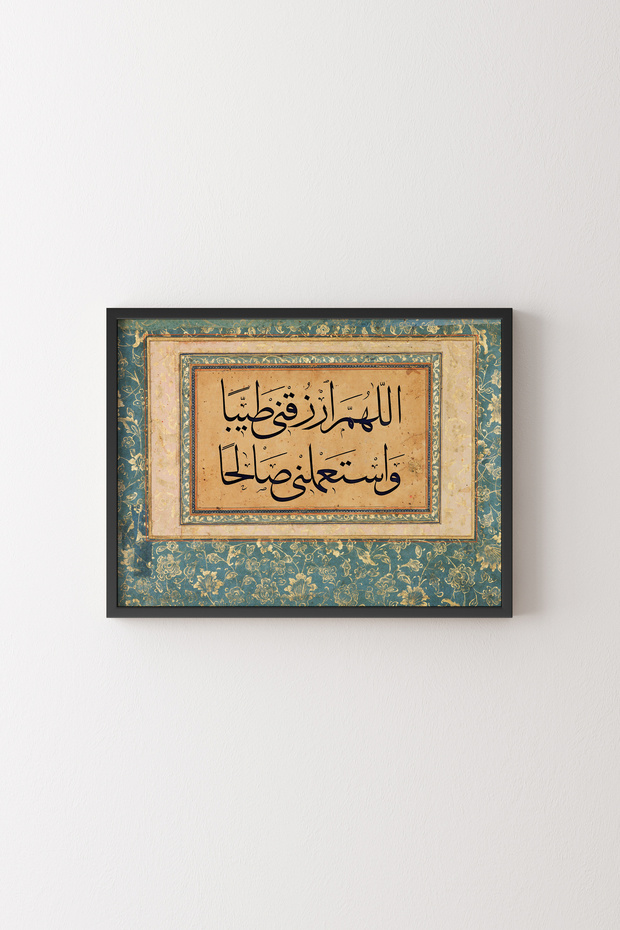 اللّهُمَّ ارْزُقْنى طَيِّبًا
وَاسْتَعْملْنى صَالِحًا